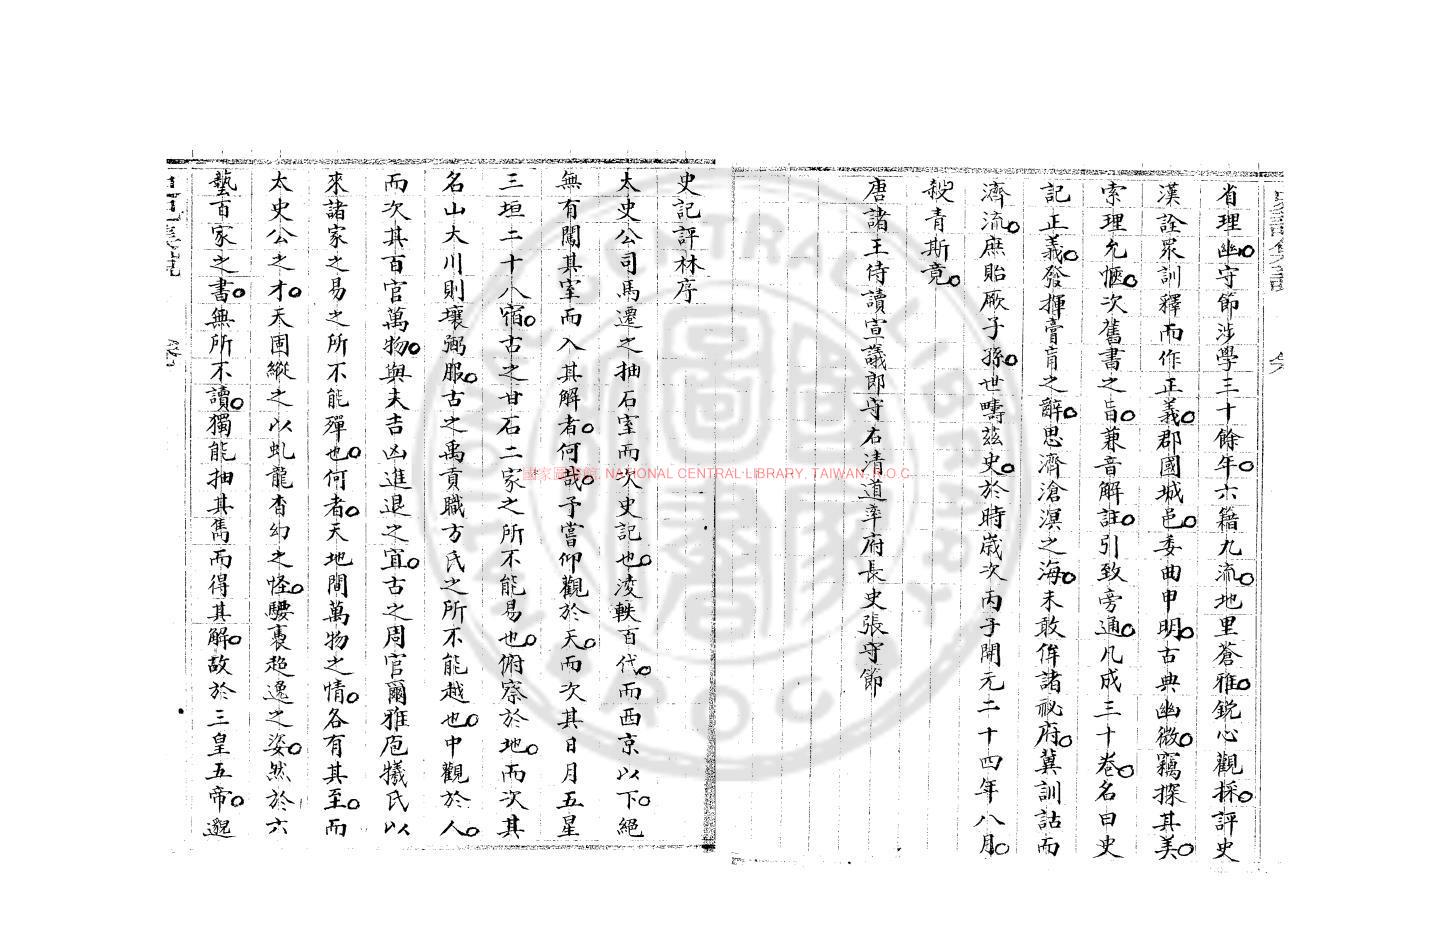 省理幽守節涉學三十餘年六籍九流地里蒼雅銳心觀採評史
漢詮眾訓釋而作正義郡國城邑委曲申明古典幽微竊探其美
索理允愜次舊書之旨兼音解註引致旁通凡成三十卷名曰史
記正義發揮膏肓之辭思濟滄溟之海未敢侔諸祕府冀訓詁而
濟流庶貽厥子孫世疇茲史於時歲次丙子開元二十四年八月
殺青斯竟
唐諸王侍讀宣議郎守右清道率府長史張守節
史記評林序
太史公司馬遷之抽石室而次史記也淩軼百代而西京以下絕
無有闖其室而入其解者何哉予嘗仰觀於天而次其日月五星
三垣二十八宿古之甘石二家之所不能易也俯察於地而次其
名山大川則壤弼服古之禹貢職方氏之所不能越也中觀於人
而次其百官萬物與夫吉凶進退之宜古之周官爾雅庖犧氏以
來諸家之易之所不能殫也何者天地間萬物之情各有其至而
太史公之才天固縱之以虬龍杳幻之怪騕褭超逸之姿然於六
藝百家之書無所不讀獨能抽其雋而得其解故於三皇五帝邈
國家圖書館, NATIONAL CENTRAL LIBRARY, TAIWAN, R.O.C